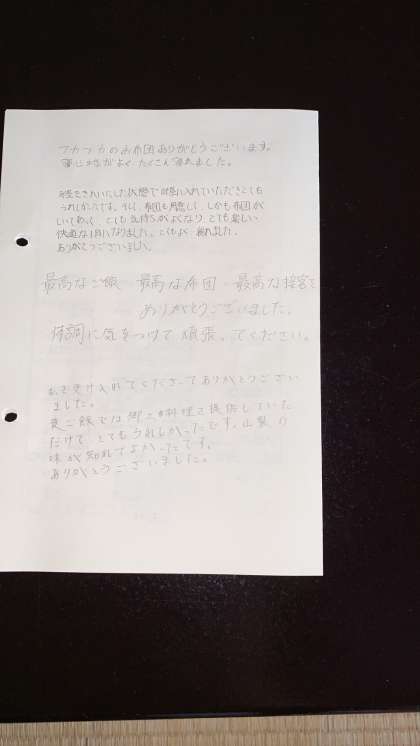 フカフカのお布団ありがとうございます。
がよく たくさん ました。
をきれいにした状態で に入れていただきとても
うれしかったです。そして、布団も用意し、しかも布団が
とても気持ちがよくなり とても楽しい
快適な1日になりました。
ありがとうございました。
最高なご飯 最高な布団 最高な接客を
ありがとうございました。
体調に気をつけて 頑張ってください。
受け入れてくださってありがとうござい
ました。
夜ご飯では郷土料理を提供していた
だけて とてもうれしかったです。山梨の
味が知れてよかったです。
ありがとうございました。